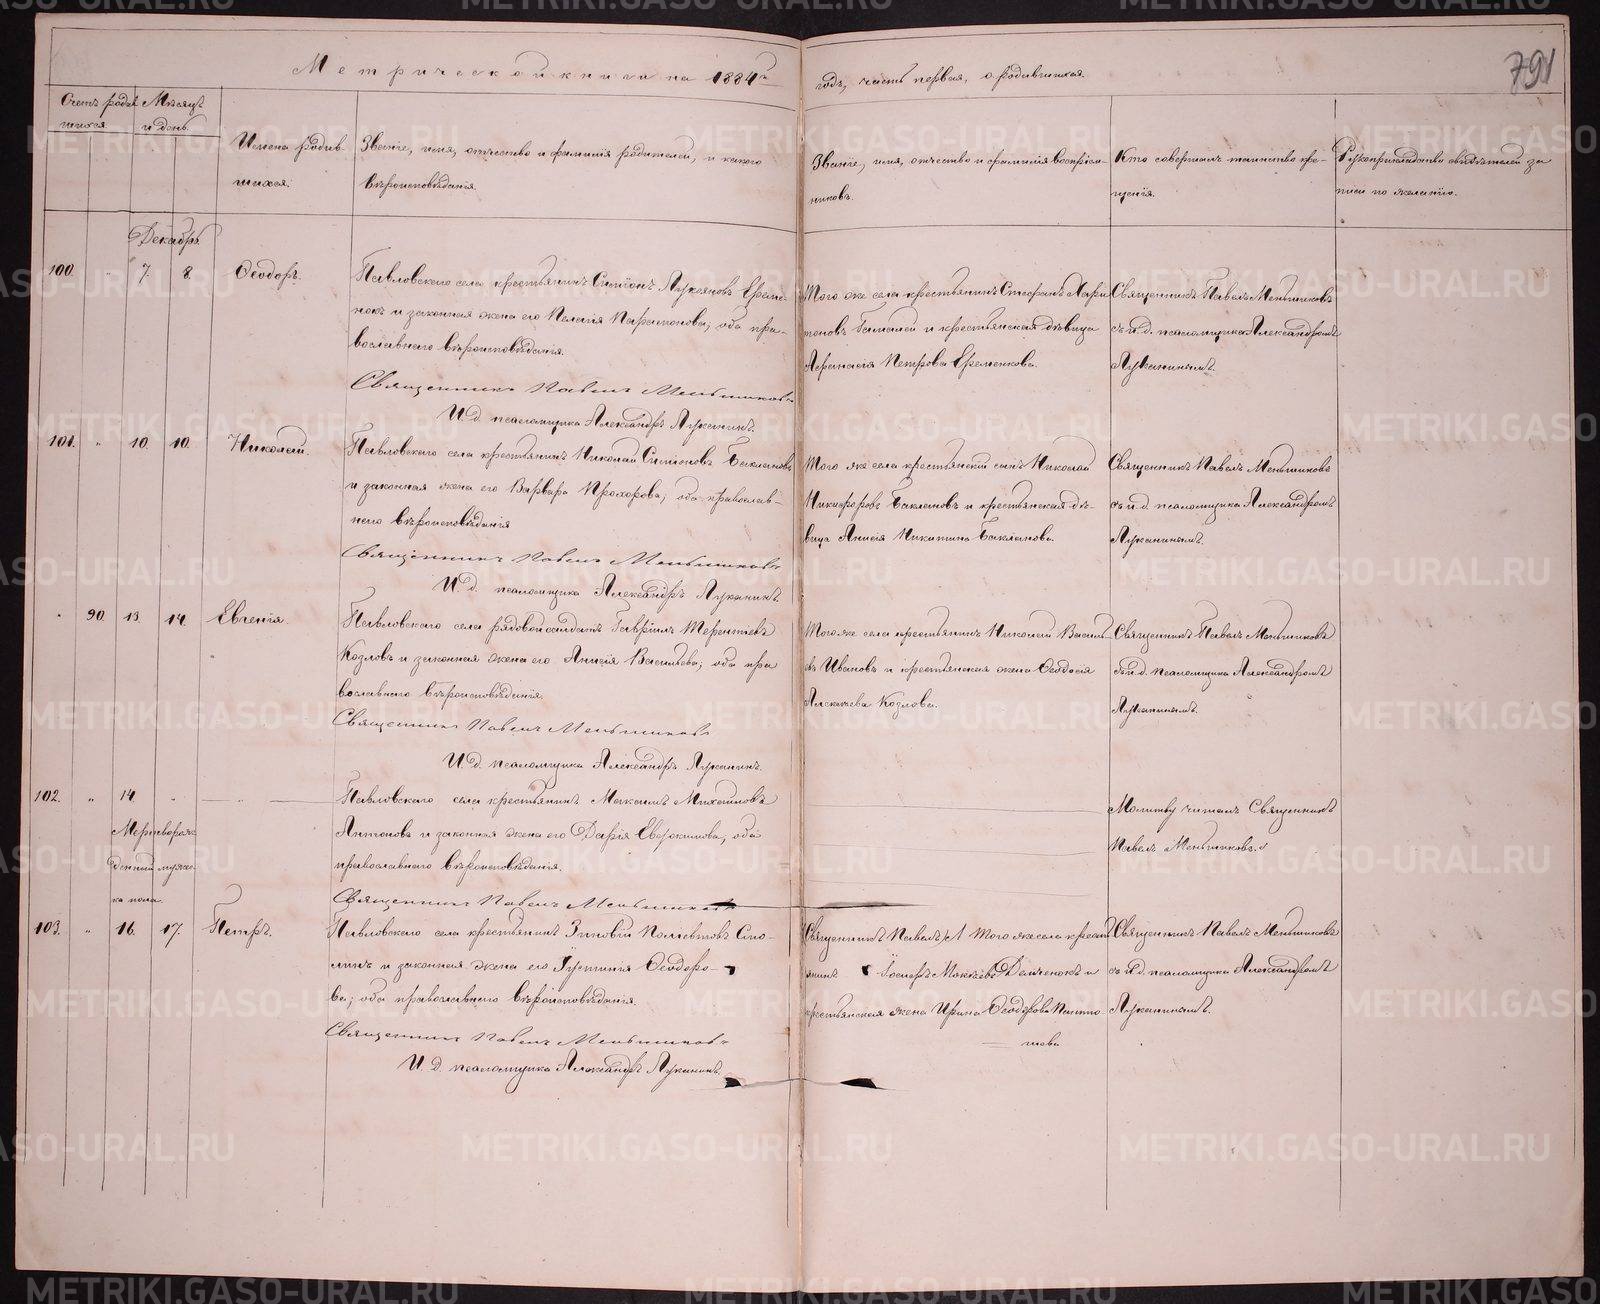 Метрической книги на 1884й
годъ, часть первая, о родившихся.
791
Счетъ родив-
шихся.
Мѣсяцъ
и день.
Имена родив-
шихся.
Званіе, имя, отчество и фамилія родителей, и какого
вѣроисповѣданія.
Званіе, имя, отчество и фамилія воспріем-
никовъ.
Кто совершалъ таинство кре-
щенія.
Рукоприкладство свидѣтелей за-
писи по желанію.
Декабрь
100. " 7. 8. Ѳеодоръ.
Павловскаго села крестьянинъ Симеонъ Лукьяновъ Еремe-
нокъ и законная жена его Пелагія Парамонова; оба пра-
вославнаго вѣроисповѣданія.
Священникъ Павелъ Меньшиковъ
И. д. псаломщика Александръ Луканинъ.
Того же села крестьянинъ Стефанъ Хари-
тоновъ и крестьянская дѣвица
Афанасія Петрова Еременкова.
Священникъ Павелъ Меньшиковъ
съ и. д. псаломщика Александромъ
Луканинымъ.
101. " 10. 10. Николай.
Павловскаго села крестьянинъ Николай Симоновъ Баклановъ
и законная жена его Варвара Прохорова; оба православ-
наго вѣроисповѣданія
Священникъ Павелъ Меньшиковъ
И. д. псаломщика Александръ Луканинъ.
Того же села крестьянскій сынъ Николай
Никифоровъ Баклановъ и крестьянская дѣ-
вица Анисія Никитина Бакланова.
Священникъ Павелъ Меньшиковъ
съ и. д. псаломщика Александромъ
Луканинымъ.
" 90. 13. 14. Евгенія.
Павловскаго села рядовой солдатъ Гавріилъ Терентьевъ
Козловъ и законная жена его Анисія Васильева; оба пра-
вославнаго вѣроисповѣданія.
Священникъ Павелъ Меньшиковъ
И. д. псаломщика Александръ Луканинъ.
Того же села крестьянинъ Николай Василь-
евъ Ивановъ и крестьянская жена Ѳеодосія
Алексѣева Козлова.
Священникъ Павелъ Меньшиковъ
съ и. д. псаломщика Александромъ
Луканинымъ.
102. " 14. "
Мертворож-
денный мужес-
ка пола.
Павловскаго села крестьянинъ Максимъ Михайловъ
Антоновъ и законная жена его Дарія Евдокимова; оба
православнаго вѣроисповѣданія.
Священникъ Павелъ Меньшиковъ
Молитву читалъ Священникъ
Павелъ Меньшиковъ.
103. " 16. 17. Петръ.
Павловскаго села крестьянинъ Зиновій Полиевтовъ Смо-
линъ и законная жена его Іустинія Ѳеодоро-
ва; оба православнаго вѣроисповѣданія.
Священникъ Павелъ Меньшиковъ
И. д. псаломщика Александръ Луканинъ.
Священникъ Павелъ М Того же села кресть-
янинъ Демченокъ и
крестьянская жена Ирина Ѳеодорова
Священникъ Павелъ Меньшиковъ
съ и. д. псаломщика Александромъ
Луканинымъ.
METRIKI.GASO-URAL.RU